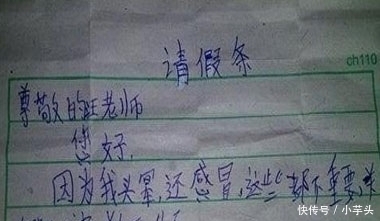 请假条
ch110
尊敬的旺老师
您好
因为我头晕,还感冒,这些都不重要,关
快传号/小芋头